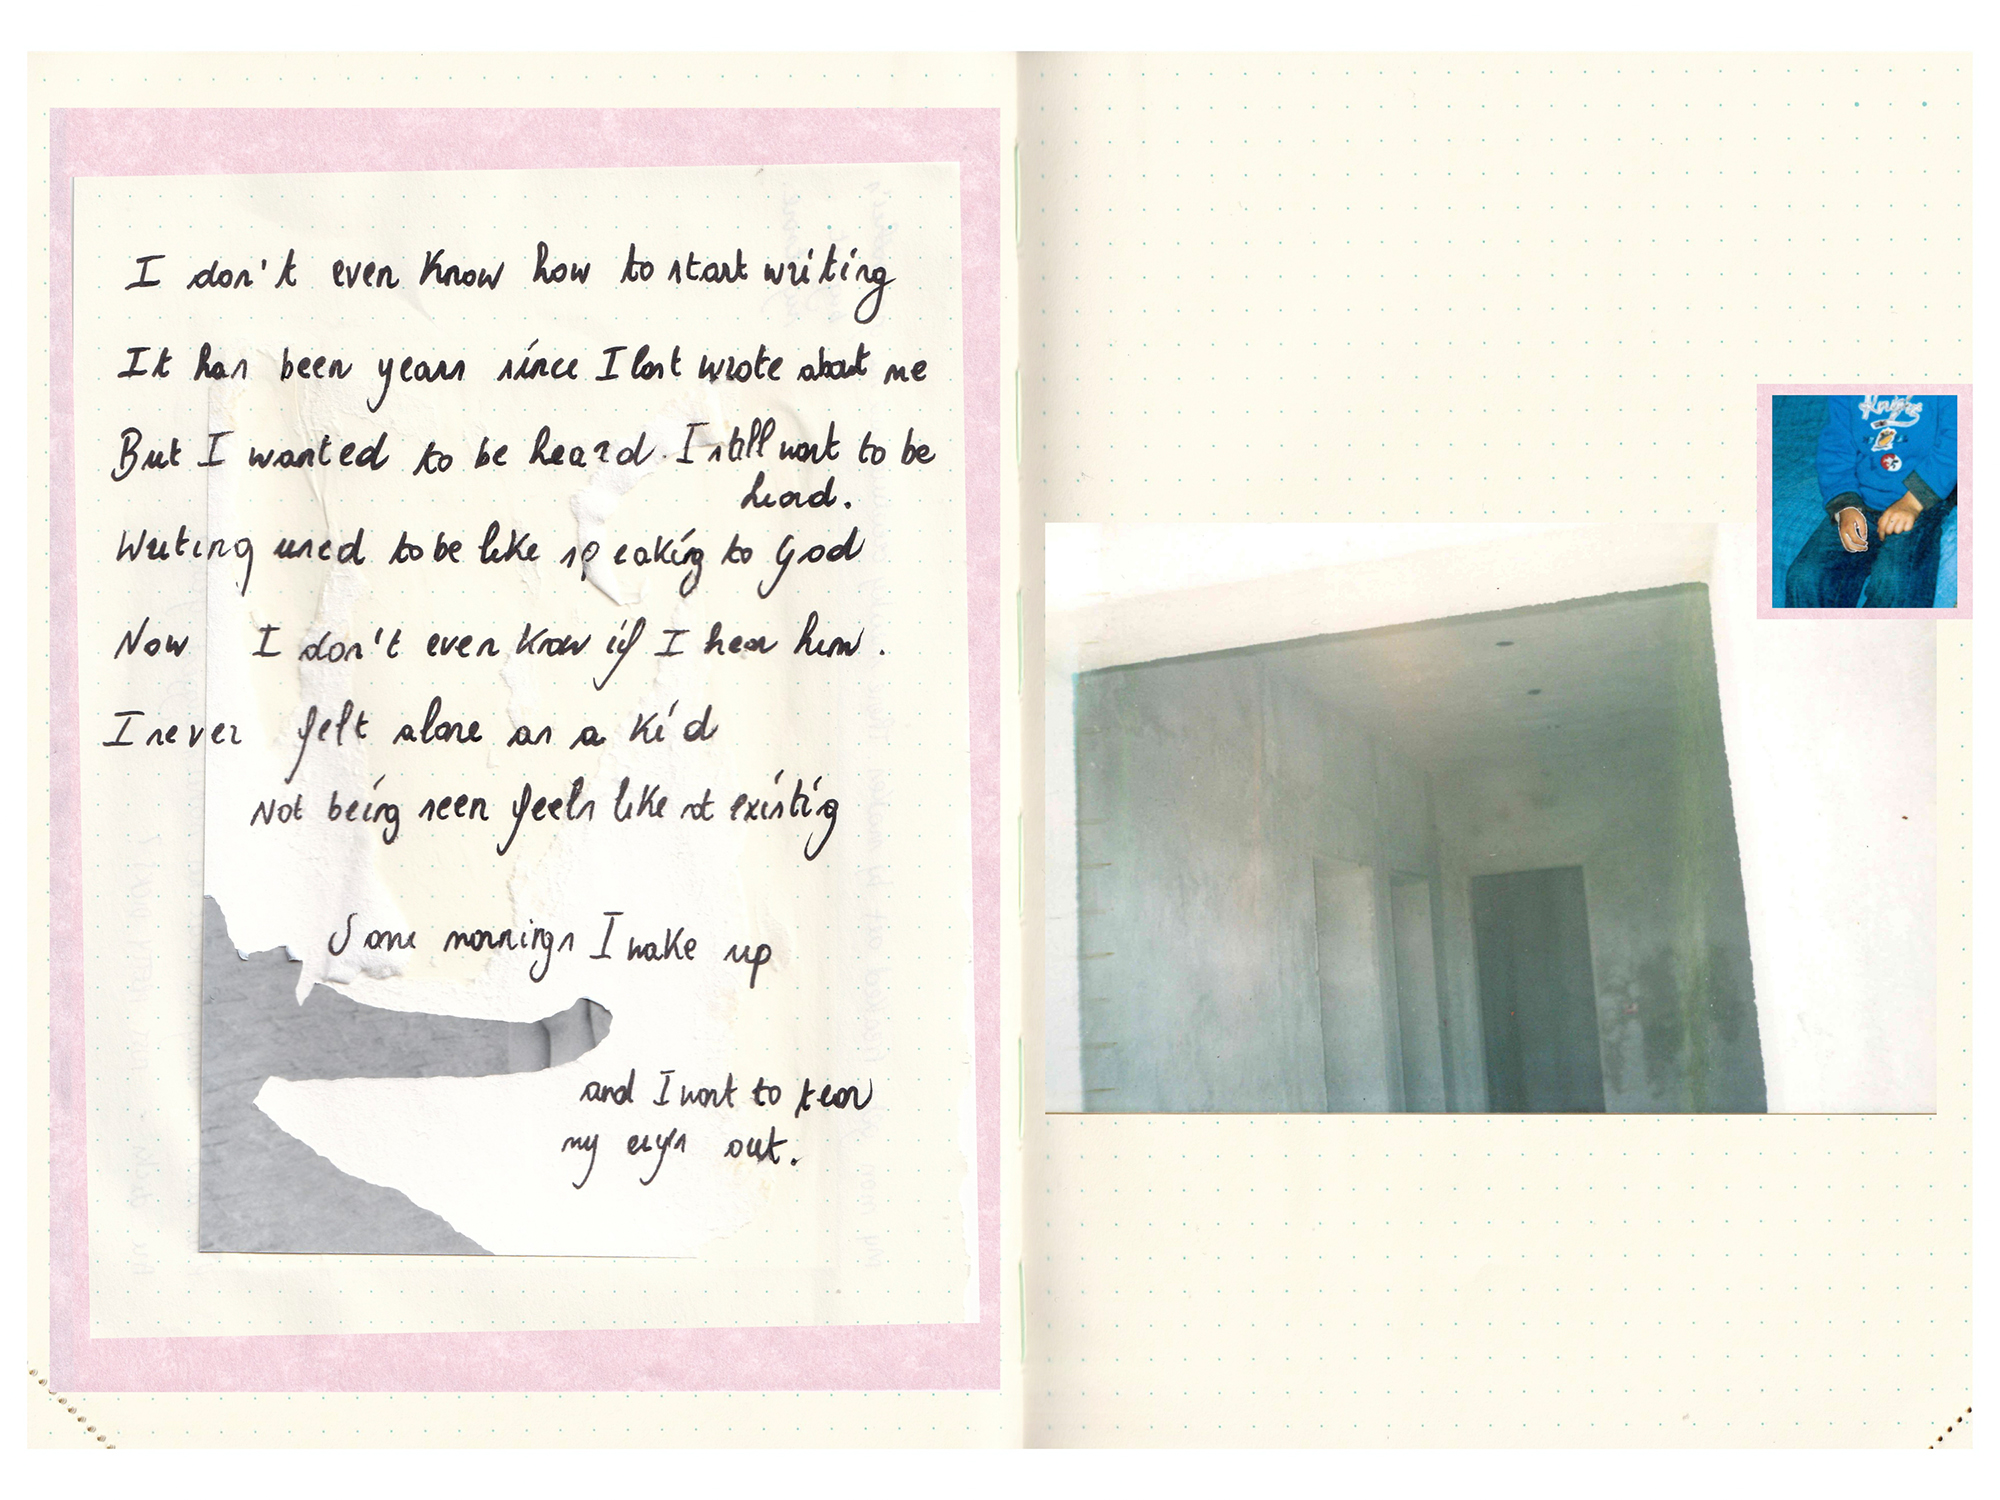 I don't even know how to start writing
It has been years since I last wrote about me
But I wanted to be heard. I still want to be
heard.
Writing used to be like speaking to God
Now I don't even know if I hear him.
I never felt alone as a kid
Not being seen feels like not existing
Some mornings I wake up
and I want to tear
my eyes out.